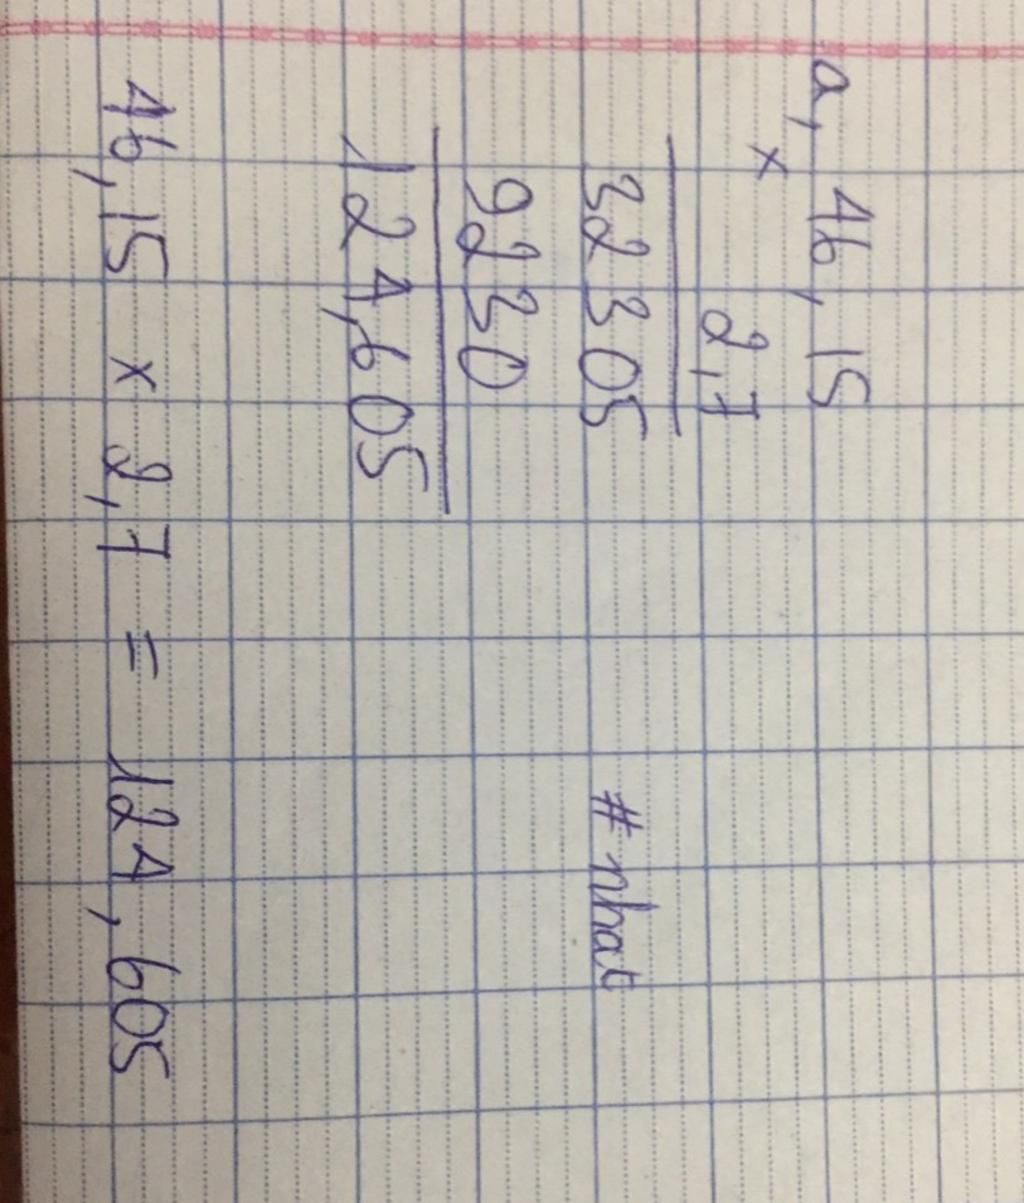 a, 46,15
×
2,7
32305
9230
124,605
# nhat
46,15 × 2,7 = 124,605